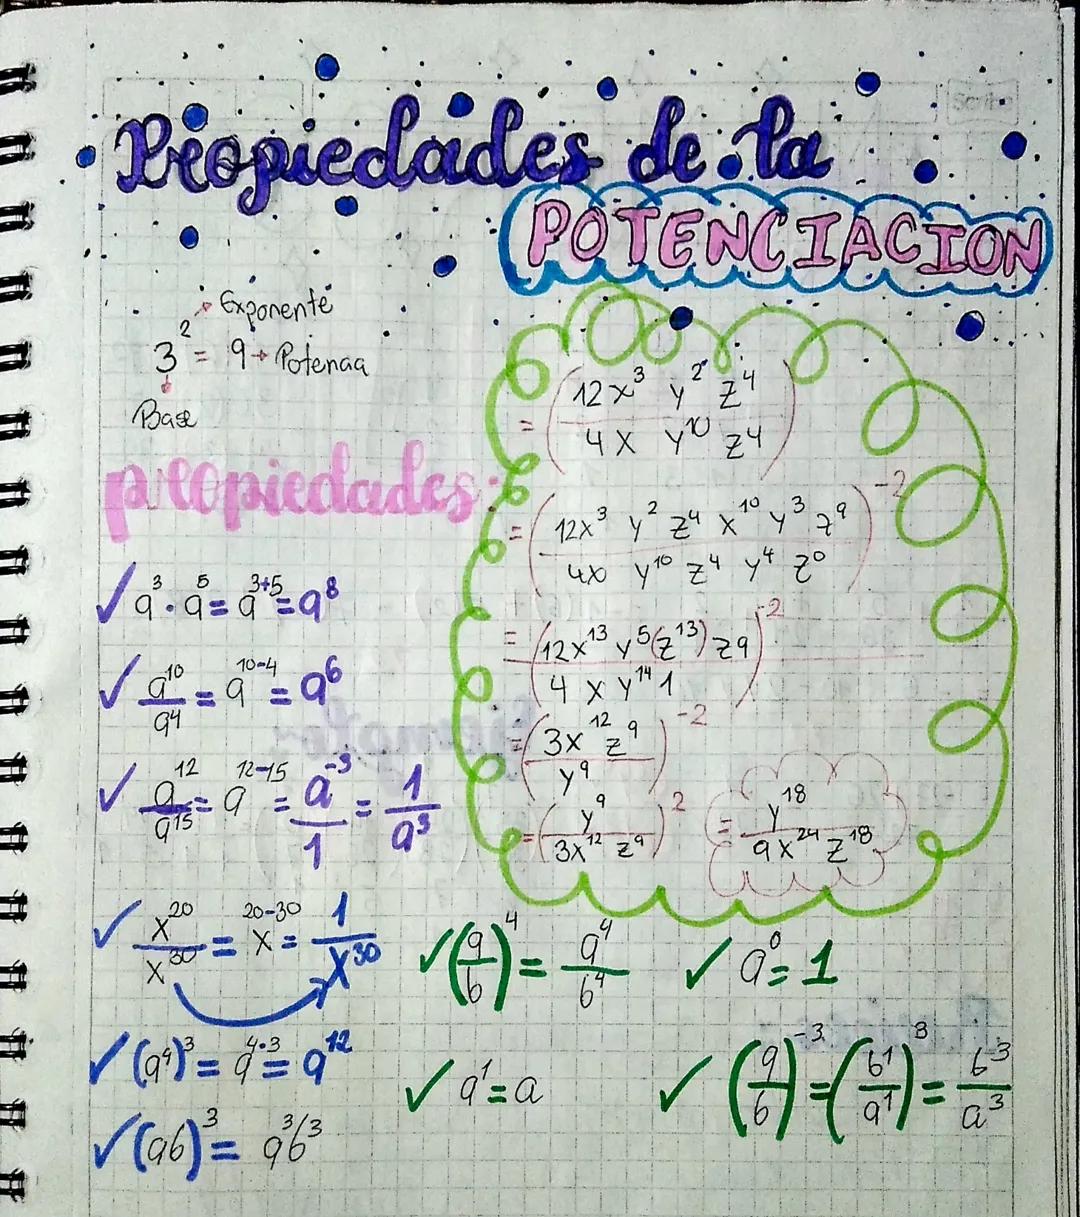 Propiedades de la
POTENCIACION
Exponente
3² = 9 → Potencia
Base
propiedades:
✓ a³ · a⁵ = a³⁺⁵ = a⁸
✓ a¹⁰/a⁴ = a¹⁰⁻⁴ = a⁶
✓ a¹²/a¹⁵ = a¹²⁻¹⁵ = a⁻³/1 = 1/a³
✓ x²⁰/x³⁰ = x²⁰⁻³⁰ = 1/x³⁰
✓ (a⁴)³ = a⁴·³ = a¹²
✓ (ab)³ = a³b³
= (12x³ y² z⁴ / 4x y¹⁰ z⁴)
= (12x³ y² z⁴ x¹⁰ y³ z⁹ / 4x y¹⁰ z⁴ y⁴ z⁰)⁻²
= (12x¹³ y⁵(z¹³) z9 / 4 x y¹⁴ 1)⁻²
= (3x¹² z⁹ / y⁹)⁻²
= (y⁹ / 3x¹² z⁹)² = y¹⁸ / 9x²⁴ z¹⁸
✓ (a/b)⁴ = a⁴/b⁴
✓ a⁰ = 1
✓ a¹ = a
✓ (a/b)⁻³ = (b¹/a¹)³ = b³/a³